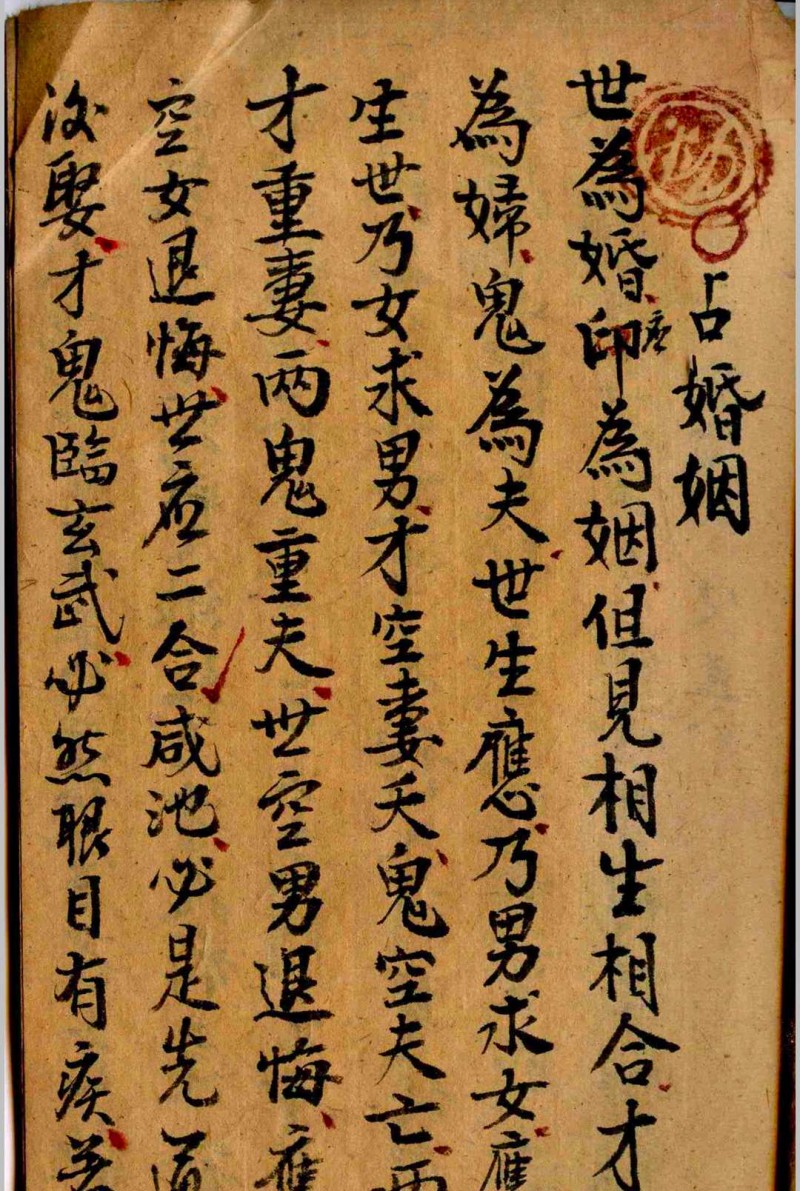 占婚姻
世為婚应印為姻但見相生相合才
為婦鬼為夫世生應乃男求女應
生世乃女求男才空妻夭鬼空夫亡两
才重妻两鬼重夫世空男退悔應
空女退悔世应二合咸池必是先
後娶才鬼臨玄武必然眼目有疾若